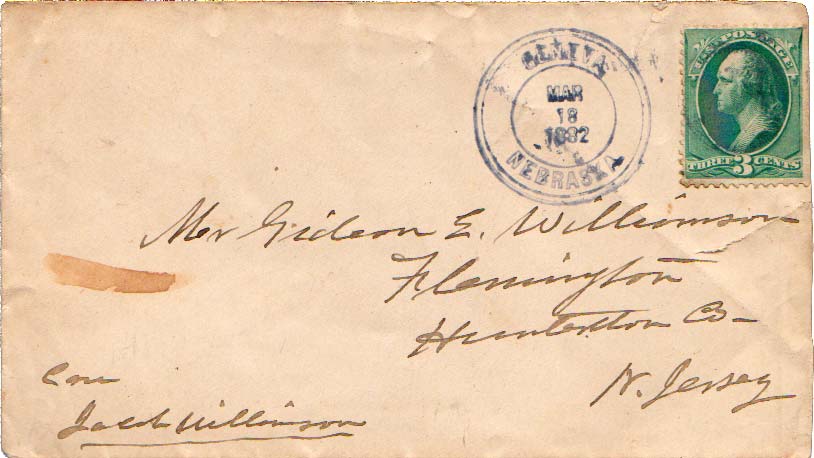 MAR
18
1882
NEBRASKA
U.S. POSTAGE
THREE 3 CENTS
Mr Gideon E. Williamson
Flemington
Hunterdon Co
N. Jersey
Care
Jacob Williamson